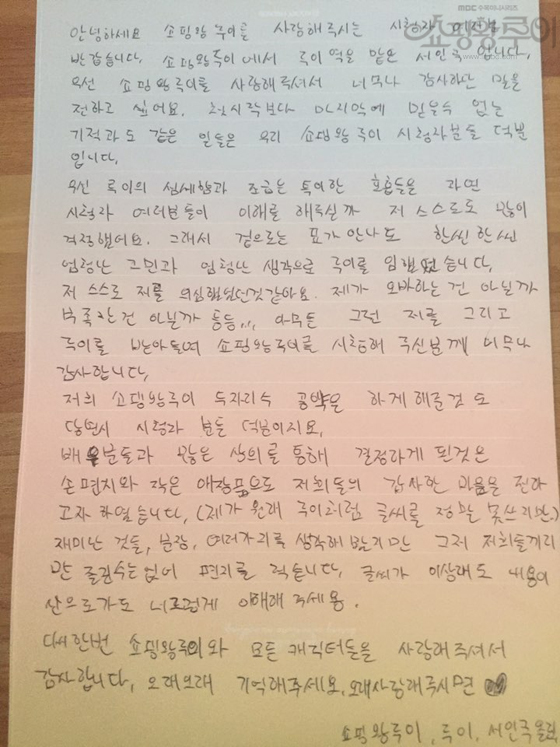 MBC 수목미니시리즈
쇼핑왕루이
안녕하세요 쇼핑왕 루이를 사랑해주시는 시청자 여러분
반갑습니다. 쇼핑왕루이에서 루이역을 맡은 서인국 입니다.
우선 쇼핑왕루이를 사랑해주셔서 너무나 감사하단 말을
전하고 싶어요. 첫시작보다 마지막에 믿을수 없는
기적과도 같은 일들은 우리 쇼핑왕루이 시청자분들 덕분
입니다.
우선 루이의 섬세함과 조금은 특이한 호흡들을 과연
시청자 여러분들이 이해를 해주실까 저 스스로도 많이
걱정했어요. 그래서 겉으로는 표가 안나도 한씬 한씬
엄청난 고민과 엄청난 생각으로 루이를 임했었습니다.
저 스스로 저를 의심했었던것 같아요. 제가 오바하는건 아닐까
부족한건 아닐까 등등,,, 아무튼 그런 저를 그리고
루이를 받아들여 쇼핑왕루이를 시청해 주신분께 너무나
감사합니다.
저희 쇼핑왕루이 두자리수 공약을 하게 해준것도
당연시 시청자 분들 덕분이지요.
배우분들과 많은 상의를 통해 결정하게 된것은
손편지와 작은 애장품으로 저희들의 감사한 마음을 전하
고자 하였습니다. (제가 원래 루이처럼 글씨를 정말 못쓰지만)
재미난 것들, 분장, 여러가지를 생각해 봤지만 그저 저희들끼리
만 즐길수는 없어 편지를 적습니다. 글씨가 이상해도 내용이
산으로가도 너그럽게 이해해 주세용.
다시한번 쇼핑왕루이와 모든 캐릭터들을 사랑해주셔서
감사합니다. 오래오래 기억해주세요. 오래사랑해주시면
쇼핑왕루이, 루이, 서인국 올림